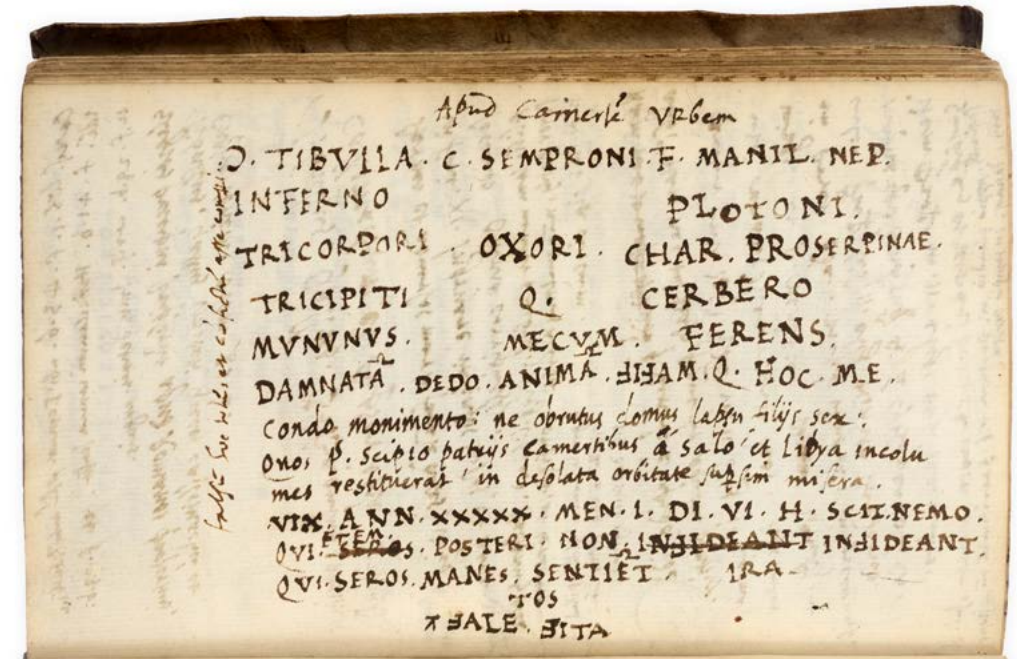 Apud Camerte Vrbem
Ɔ. TIBVLLA. C. SEMPRONI. F. MANIL. NEP.
INFERNO PLOTONI.
TRICORPORI. OXORI. CHAR. PROSERPINAE.
TRICIPITI Q. CERBERO
MVNVNVS. MECVM. FERENS.
DAMNATĀ. DEDO. ANIMĀ. ℲIℲAM. Q. HOC. ME.
condo monimento: ne obrutus domus lapsu filijs sex:
Onos P. Scipio patrijs Camertibus á Salo et Libya incolu
mes restituerat in desolata orbitate supsim misera.
VIX. ANN. XXXXX. MEN. I. DI. VI. H. SCIT. NEMO.
ETEM
QVI. SEROS. POSTERI. NON. INℲIDEANT INℲIDEANT.
QVI. SEROS. MANES. SENTIĒT. IRA
TOS
ℲALE. ℲITA